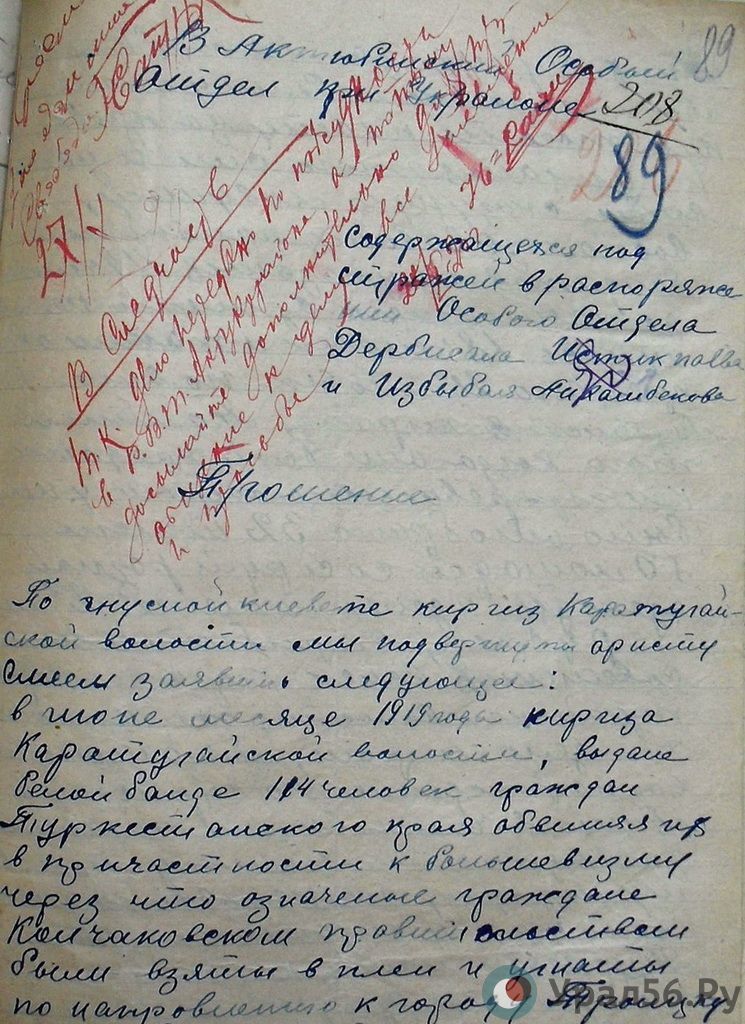 89
В Актюбинский Особый
Отдел при Украйоне 208
89
27/X
В Следчасть
Содержащегося под
стражей в распоряже
нии Особого Отдела
и Избыбая
Т.К. дело передано по подсудности
в Р.В.Т. Актукрайона, а потому
досылайте дополнительно
и просьбы
Прошение
По гнусной клевете киргиз Каратугай-
ской волости мы подвергнуты аристу
Смеем заявить следующее:
в июне месяце 1919 года киргиза
Каратугайской волости, выдали
белой банде 114 человек граждан
Туркестанского края обвиняя их
в причастности к большевизму
через что означеные граждане
Колчаковском правительством
были взяты в плен и угнаты
по направлению к городу Троицку
Урал56.Ру